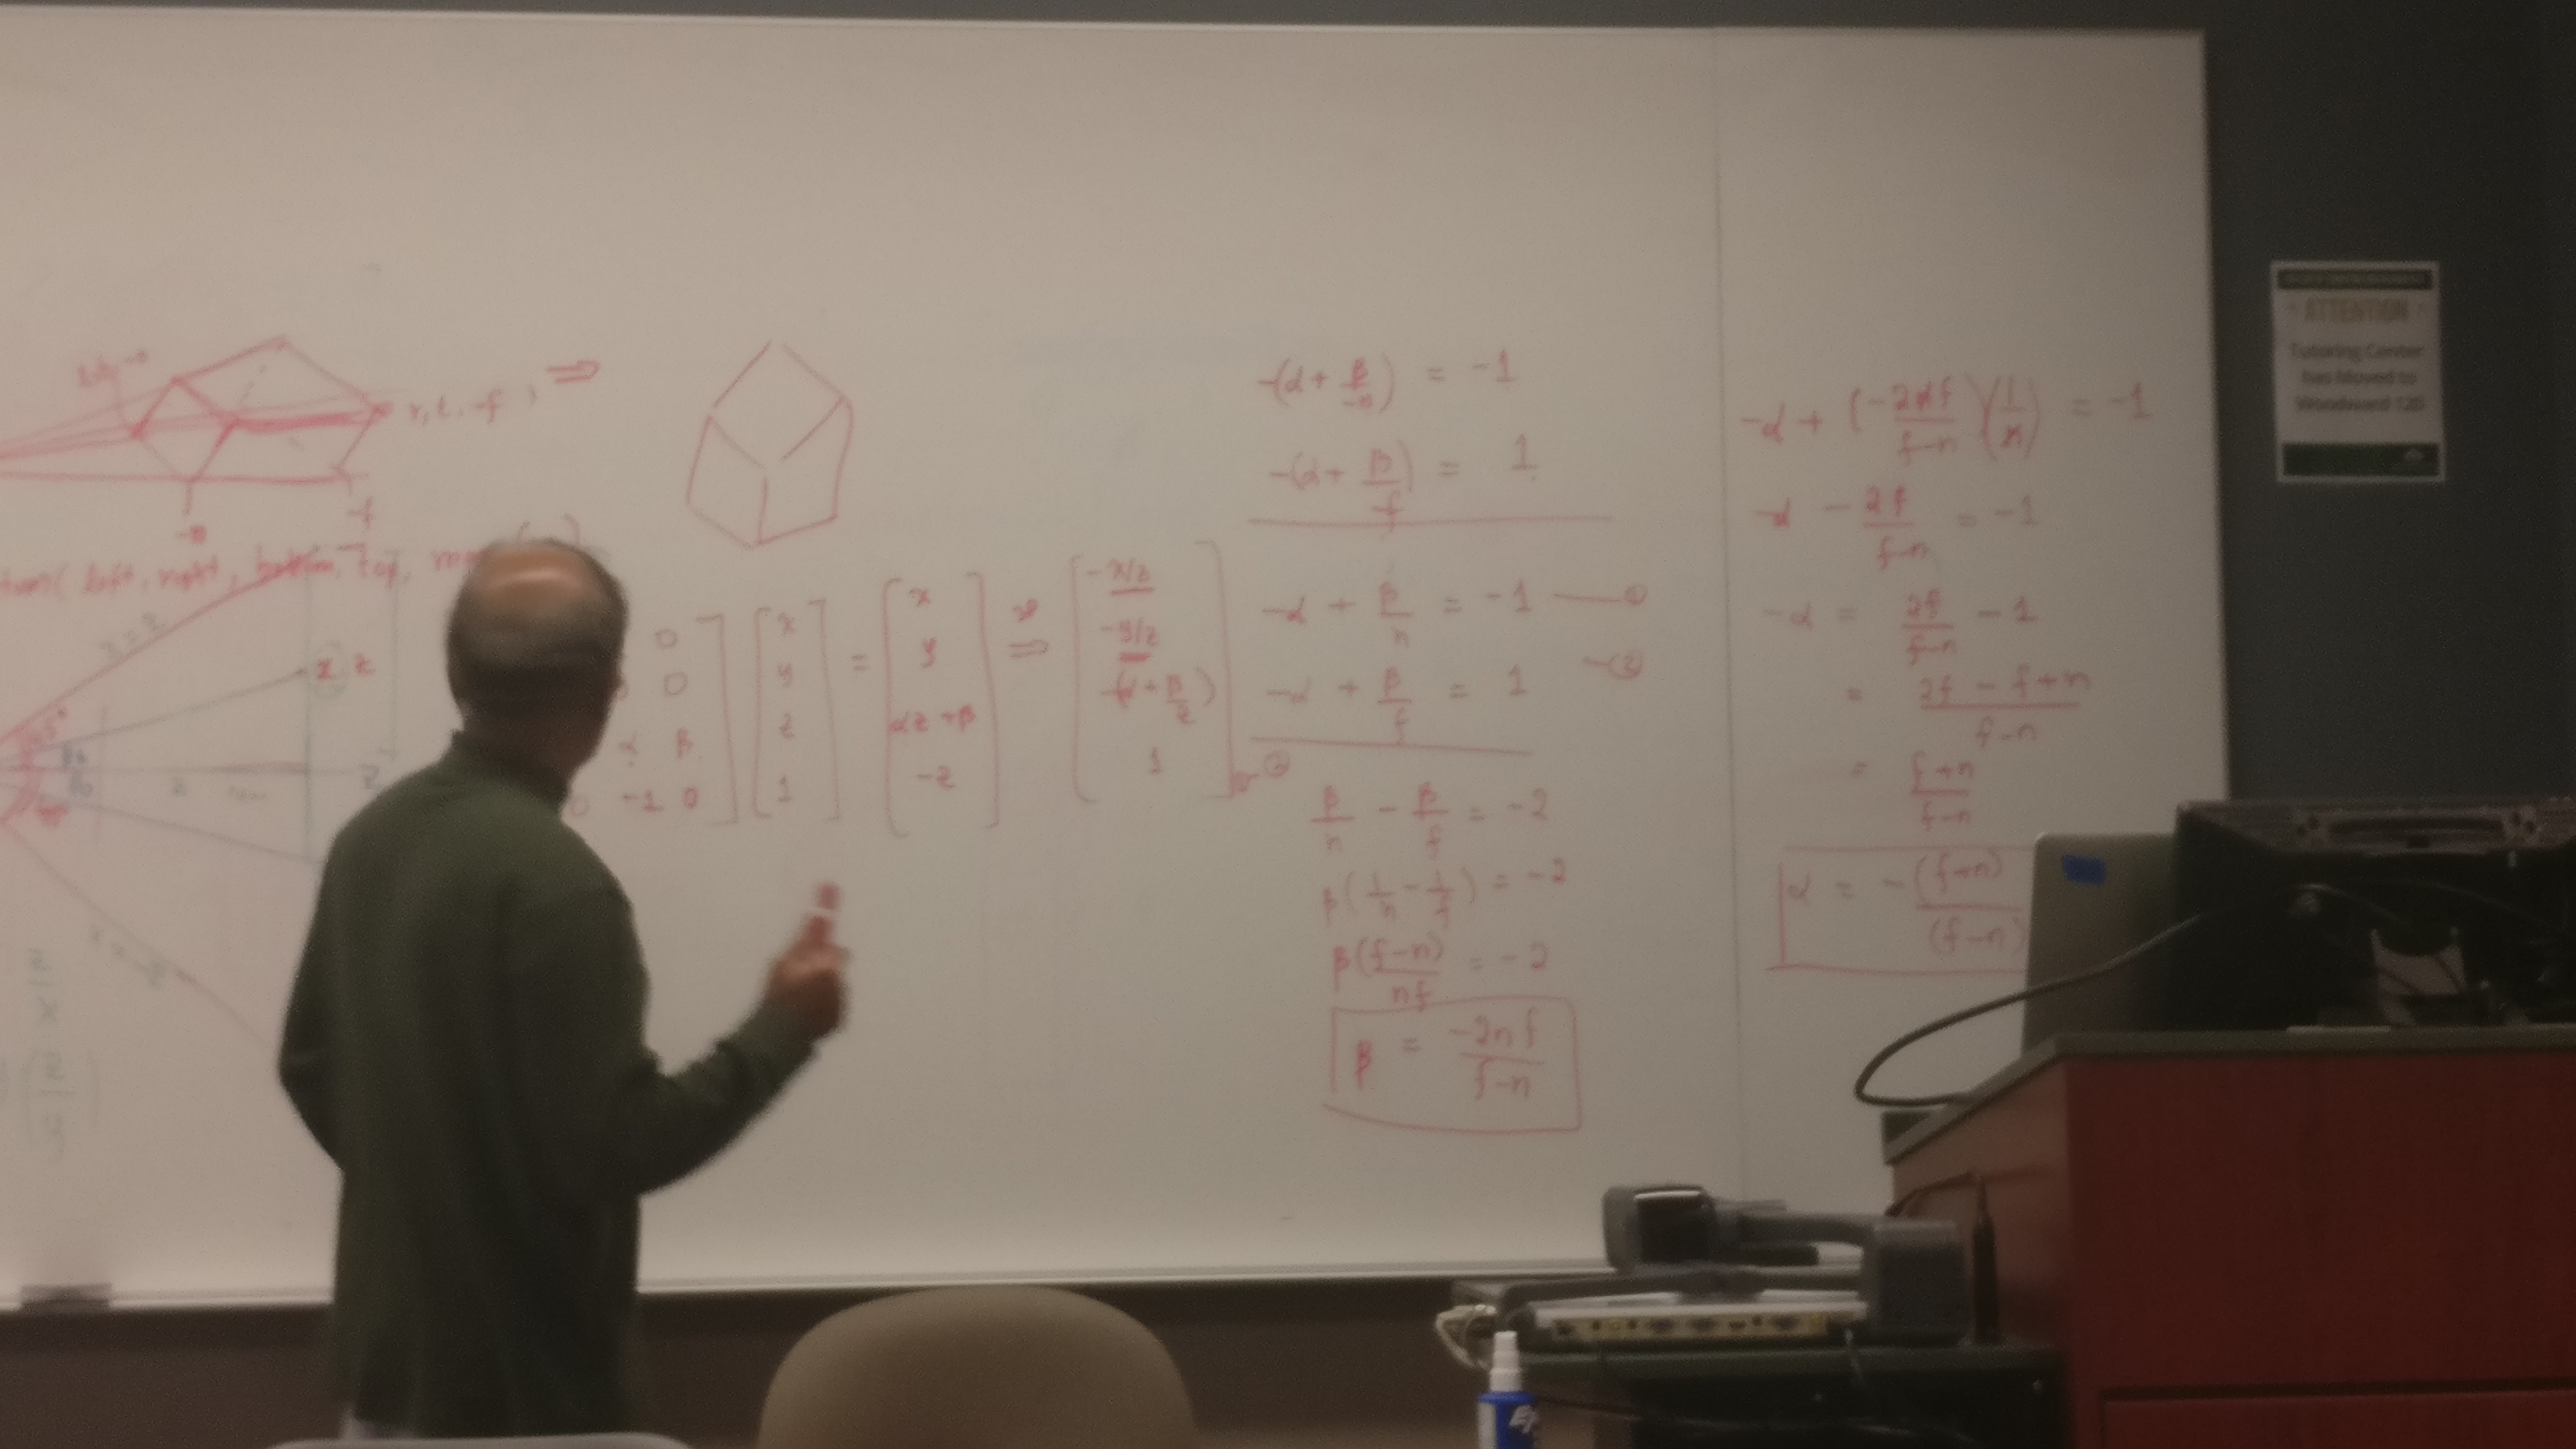 r, t, -f , ⇒
-n
-f
left, right, bottom, top,
x = z
x z
45°
0
0
α β
0 -1 0
[x
y
z
1]
=
[x
y
αz + β
-z]
⇒
[-x/z
-y/z
-(α + β/z)
1]
-(α + β/-n) = -1
-(α + β/f) = 1
-α + β/n = -1 — ①
-α + β/f = 1 — ②
①-②
β/n - β/f = -2
β(1/n - 1/f) = -2
β(f-n)/nf = -2
β = -2nf/f-n
-α + (-2nf/f-n)(1/n) = -1
-α - 2f/f-n = -1
-α = 2f/f-n - 1
= 2f - f+n/f-n
= f+n/f-n
α = -(f+n)/(f-n)
ATTENTION
Tutoring Center
has Moved to
Woodward 120